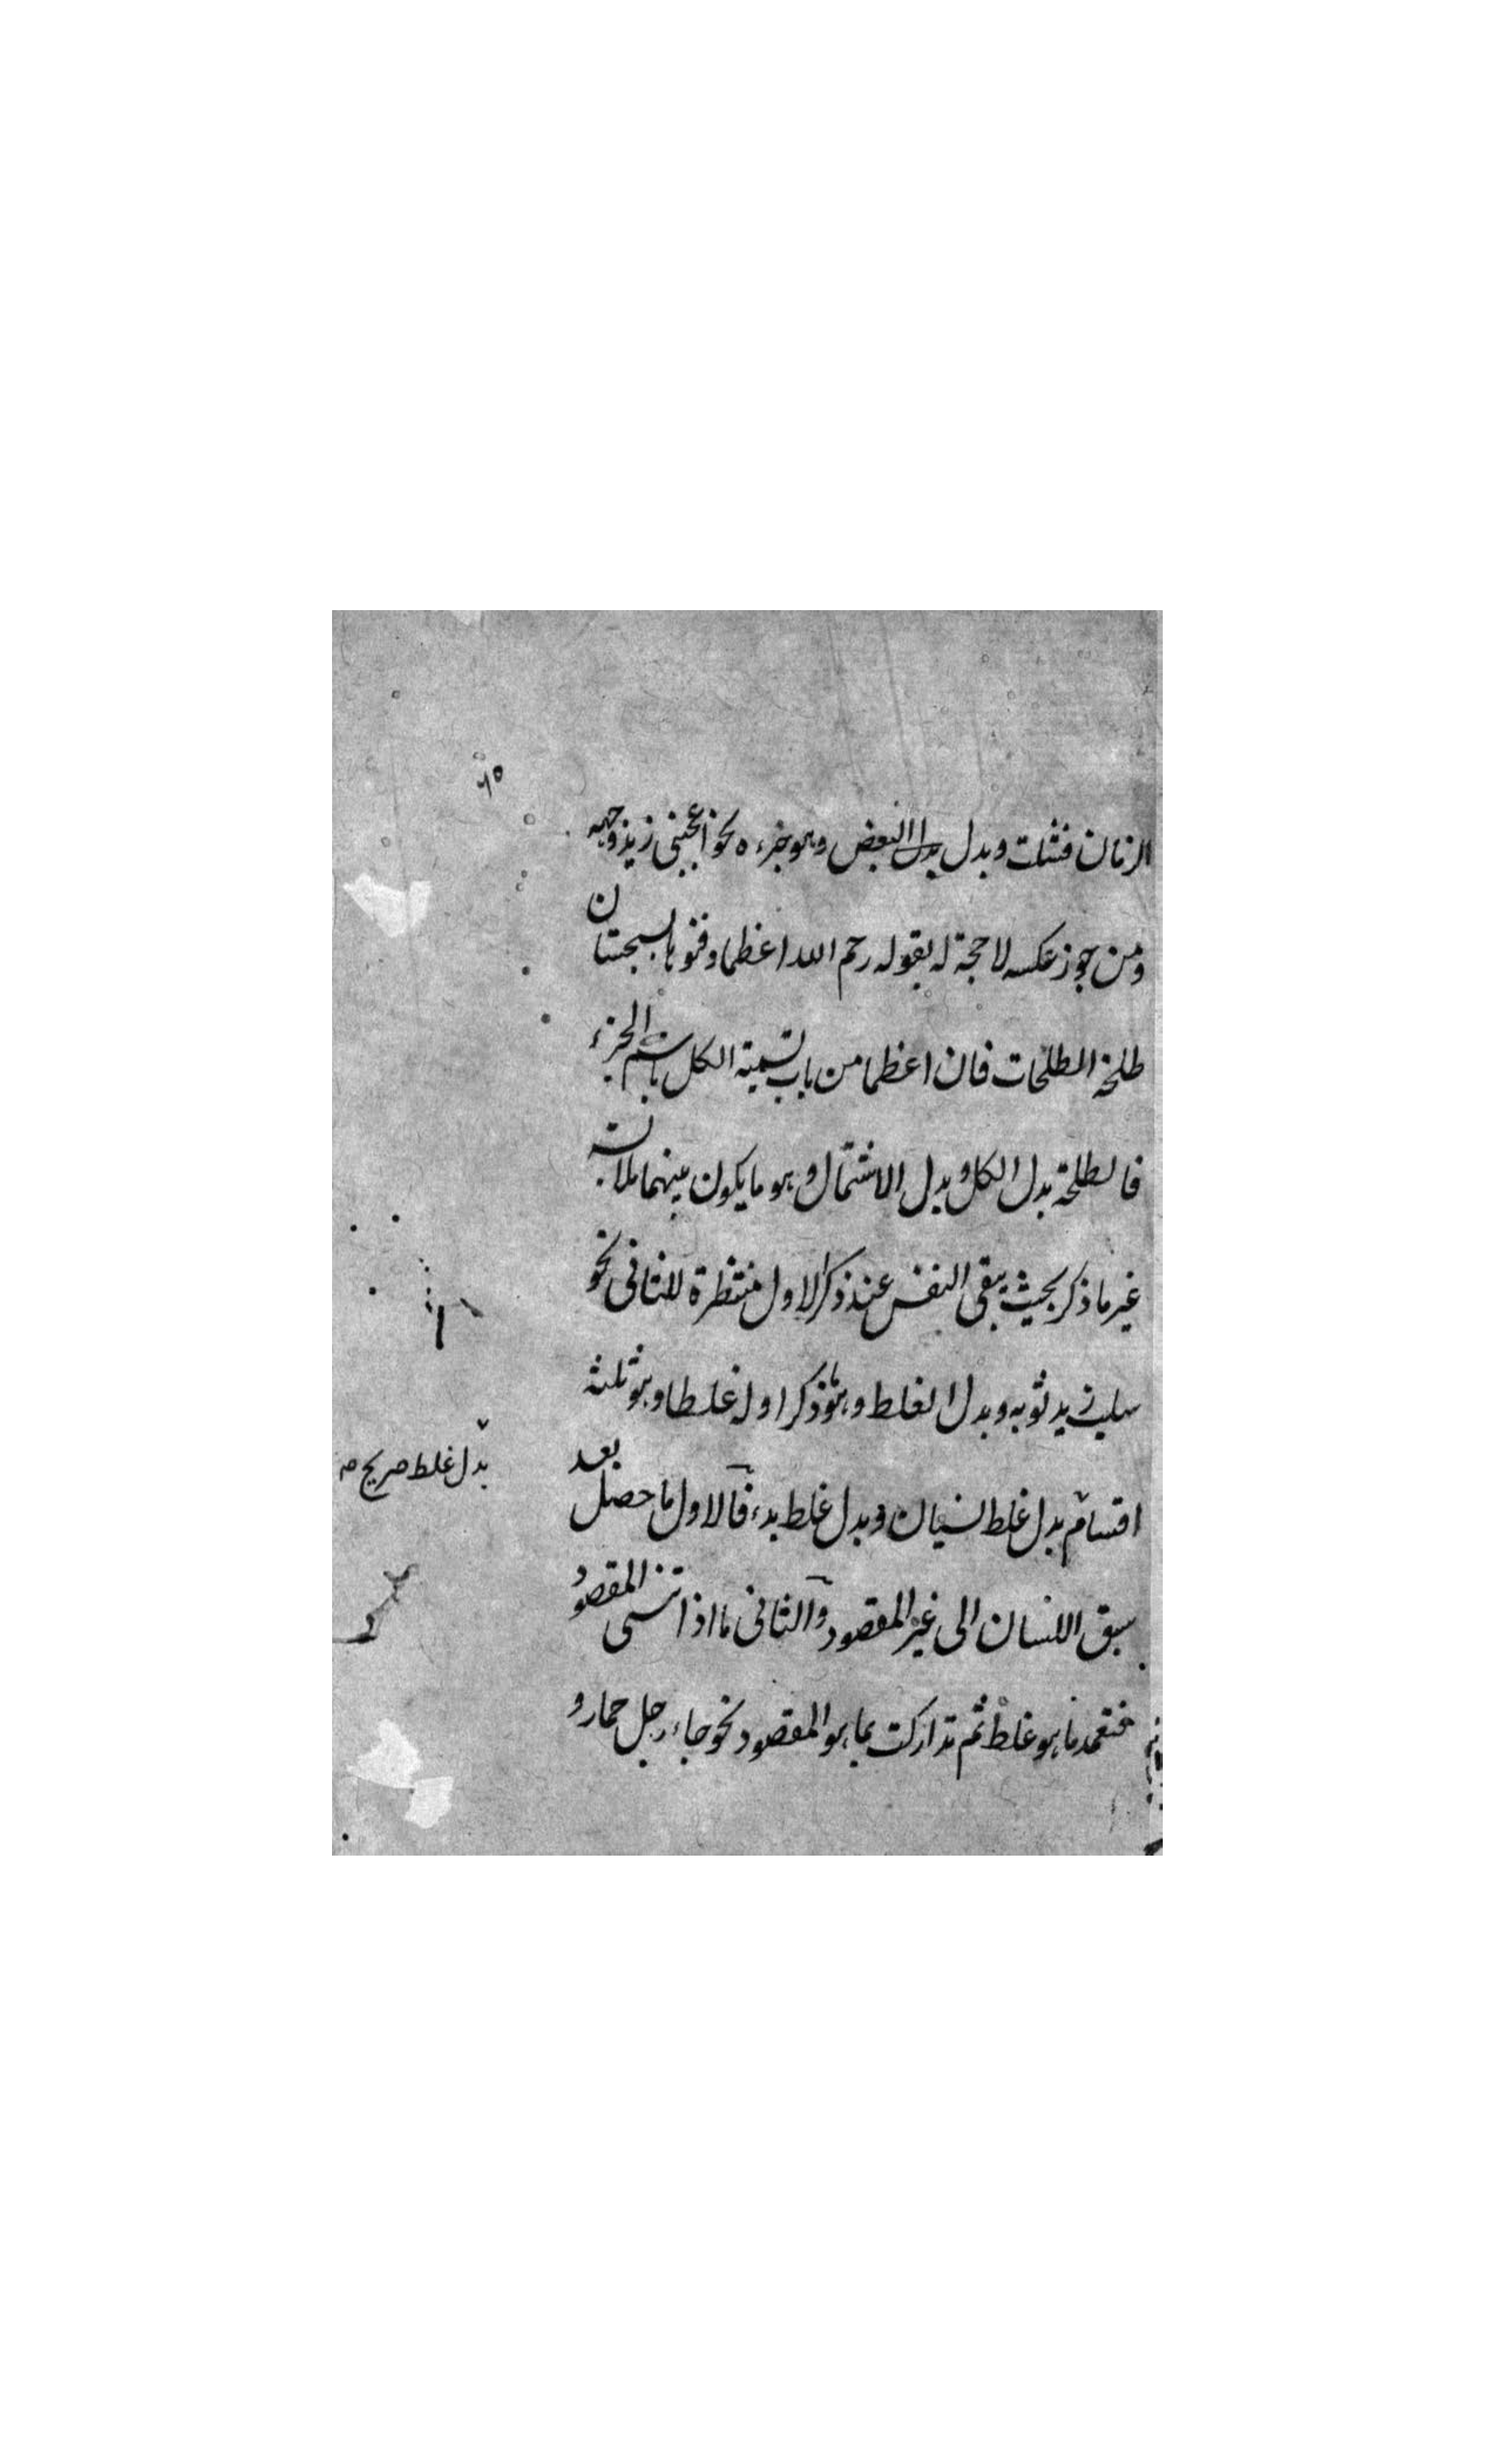 ٦٥
الزمان فشلت وبدل بدل البعض وهو جزءه نحو اعجبنى زيد وجهه
ومن جوز عكسه لا حجة له بقوله رحم الله اعظما دفنوها بسجستان
طلحة الطلحات فان اعظما من باب تسمية الكل باسم الجزء
فالطلحة بدل الكل وبدل الاشتمال وهو ما يكون بينهما ملابسة
غير ما ذكر بحيث يبقى النفس عند ذكر الاول منتظرة للثانى نحو
سلب زيد ثوبه وبدل الغلط وهو ذكر اوله غلطا وهو ثلثة
اقسام بدل غلط نسيان وبدل غلط بدء فالاول ما حصل بعد
بدل غلط صريح
سبق اللسان الى غير المقصود والثانى ما اذا تنسى المقصود
فتعمد ما هو غلط ثم تداركت بما هو المقصود نحو جاء رجل حمار و